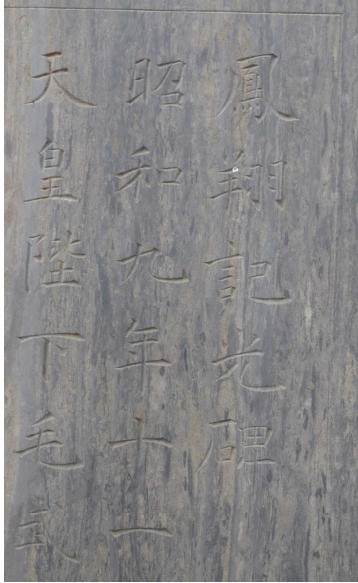 鳳翔記光碑
昭和九年十一
天皇陛下毛武